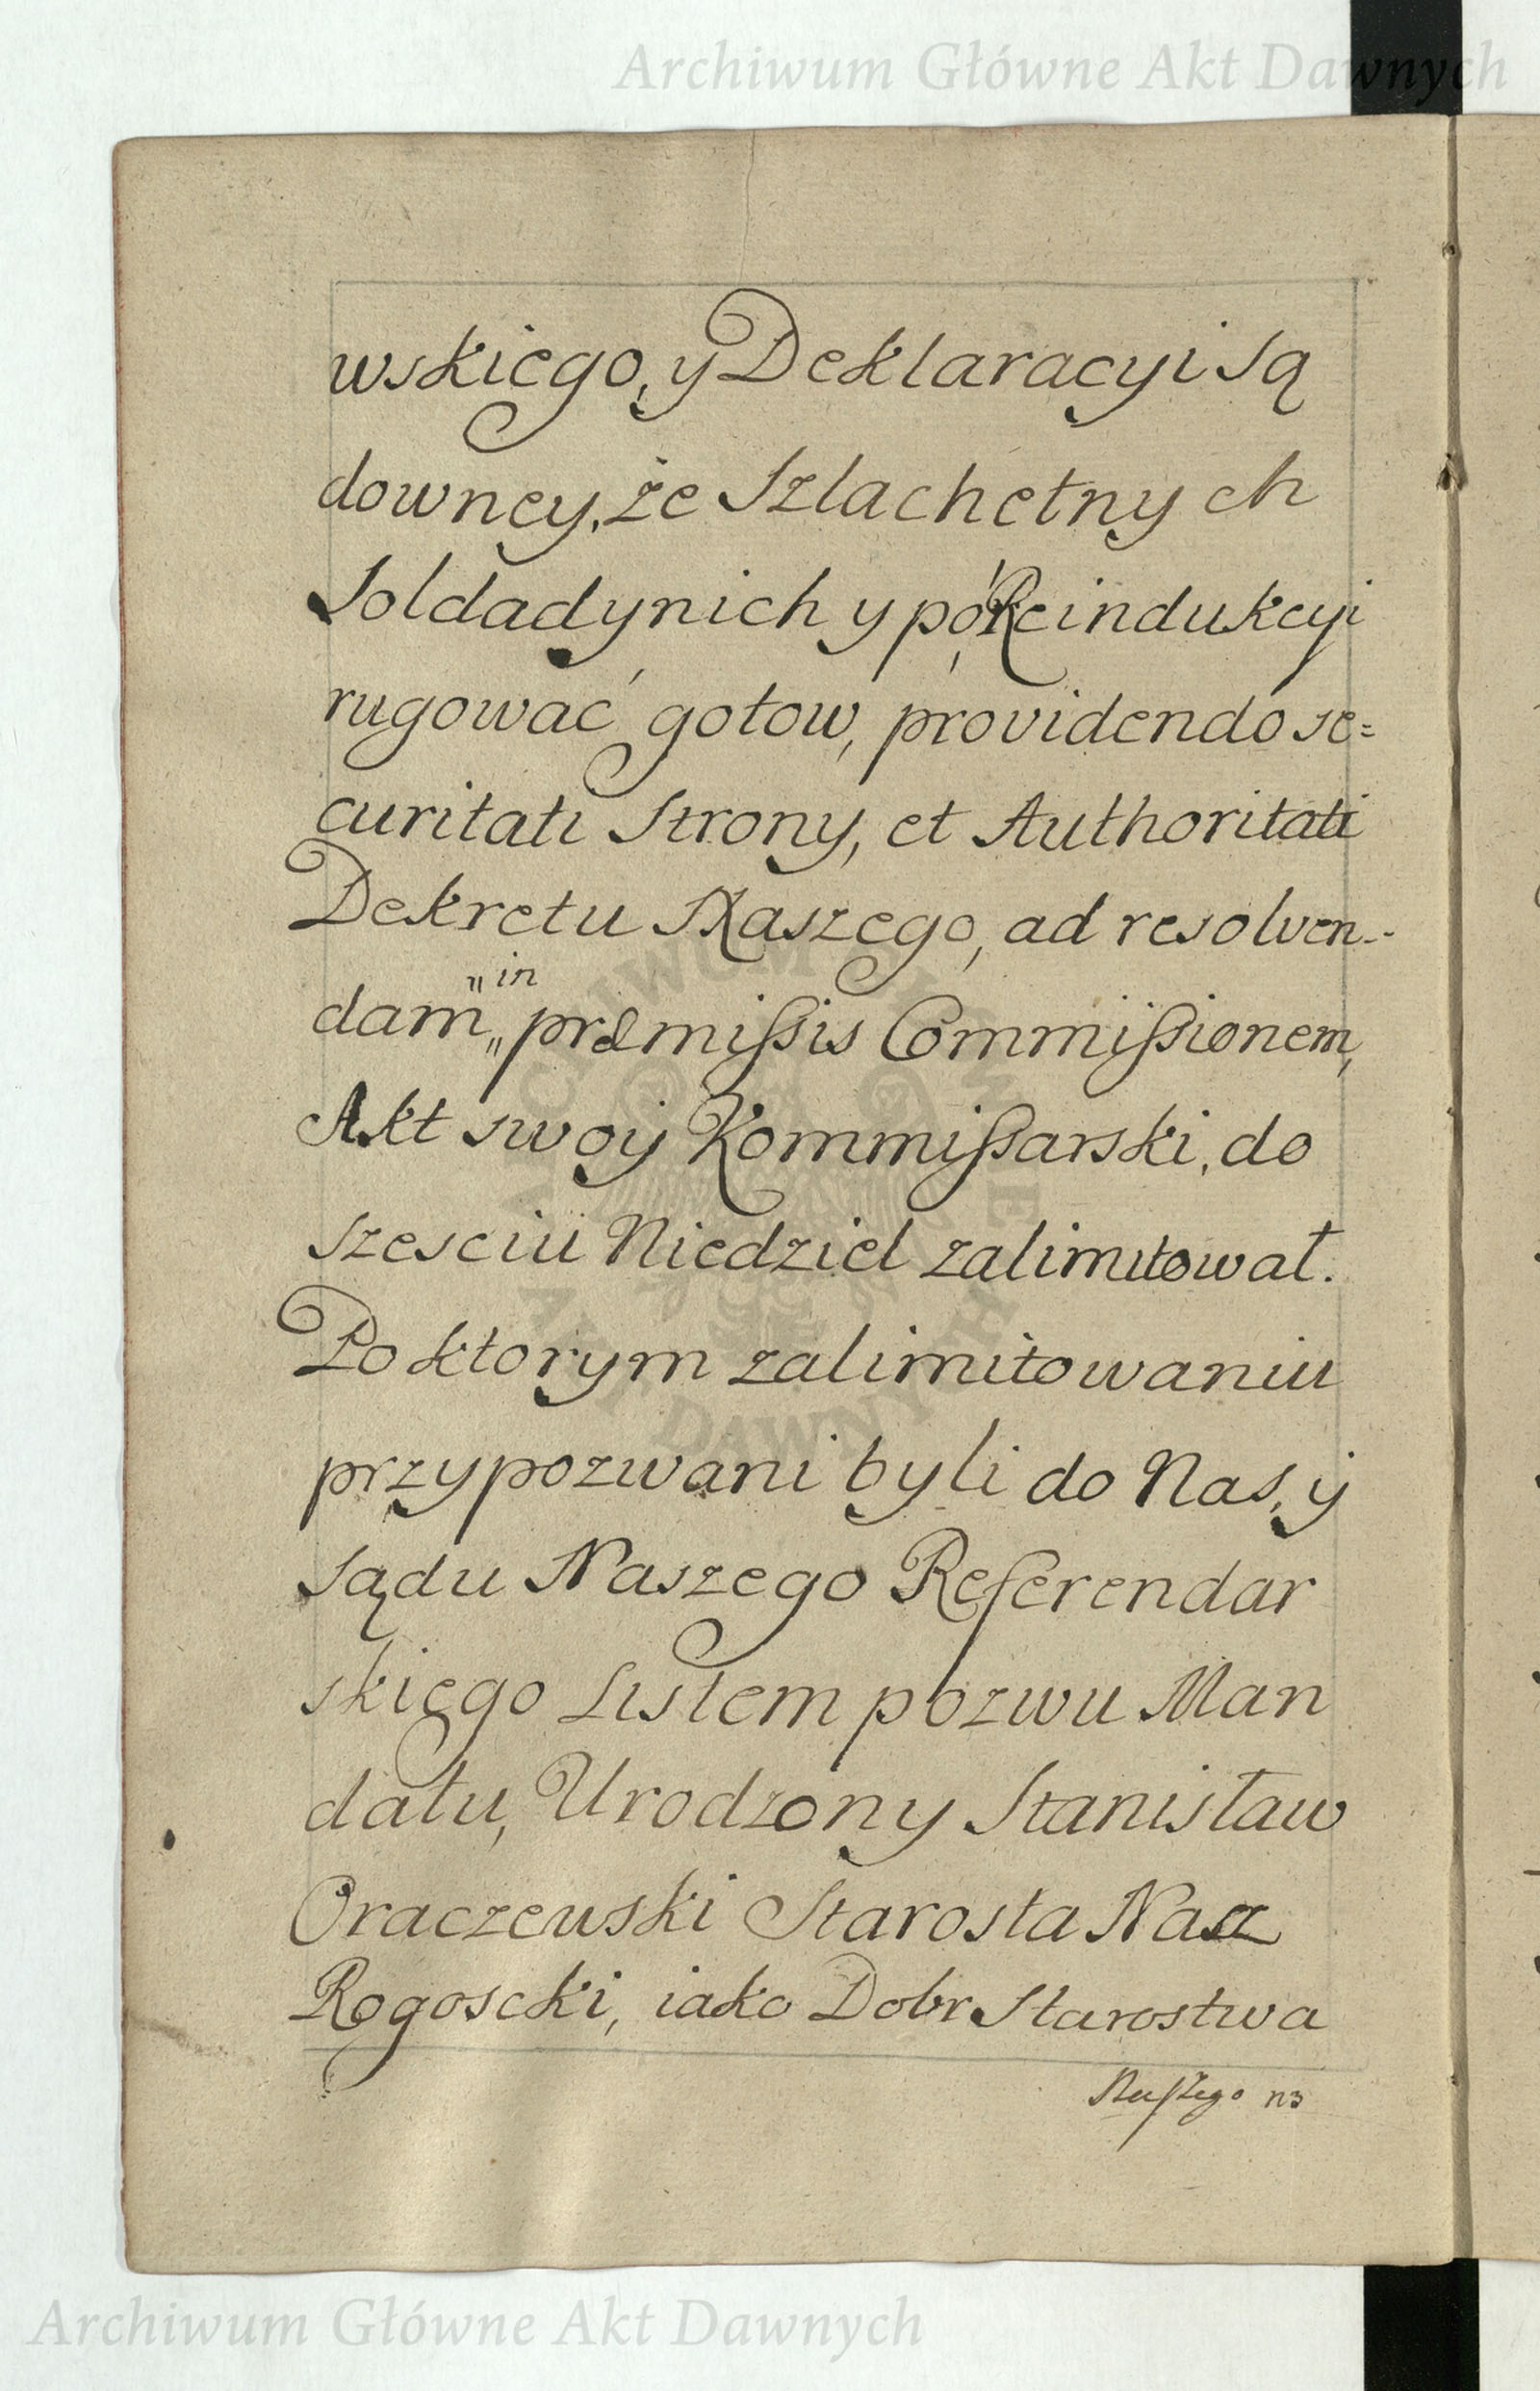 Archiwum Główne Akt Dawnych
wskiego, y Deklaracyi Są
downey, że Szlachetny ch
Soldadynich y po Reindukcyi
rugować gotow, providendo se=
curitati Strony, et Authoritati
Dekretu Naszego, ad resolven-
dam „in præmissis Commissionem,
Akt swoy Kommissarski, do
szesciu Niedziel zalimitował.
Po ktorym zalimitowaniu
przypozwani byli do Nas, y
Sądu Naszego Referendar
skiego Listem pozwu Man
datu, Urodzony Stanisław
Oraczewski Starosta Nasz
Rogoscki, iako Dobr Starostwa
Archiwum Główne Akt Dawnych